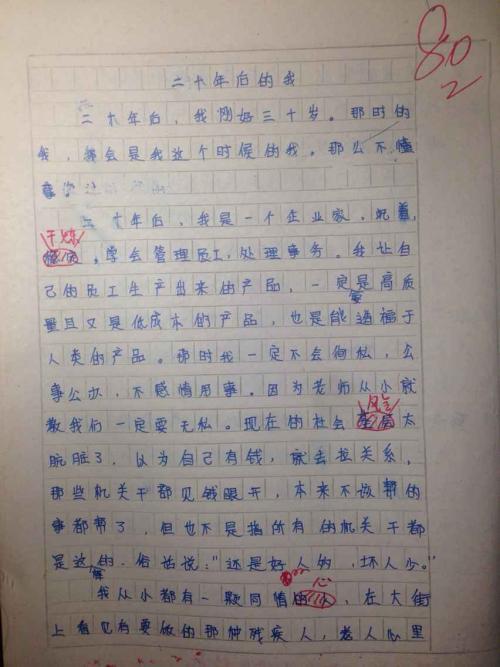 80
2
二十年后的我
二十年后，我刚好三十岁。那时的
我，会是我这个时候的我。那么不懂
事
二十年后，我是一个企业家，沉着，
干练
。学会管理员工，处理事务。我让自
己的员工生产出来的产品，一定是高质
量且又是低成本的产品，也是能造福于
人类的产品。那时我一定不会徇私，公
事公办，不感情用事。因为老师从小就
教我们一定要无私。现在的社会太
风气
肮脏了，以为自己有钱，就去拉关系，
那些机关干部见钱眼开，本来不该帮的
事都帮了，但也不是指所有的机关干部
是这的。俗话说："还是好人多，坏人少。"
样
心
我从小都有一颗同情，在大街
上看见有要饭的那种残疾人，老人心里